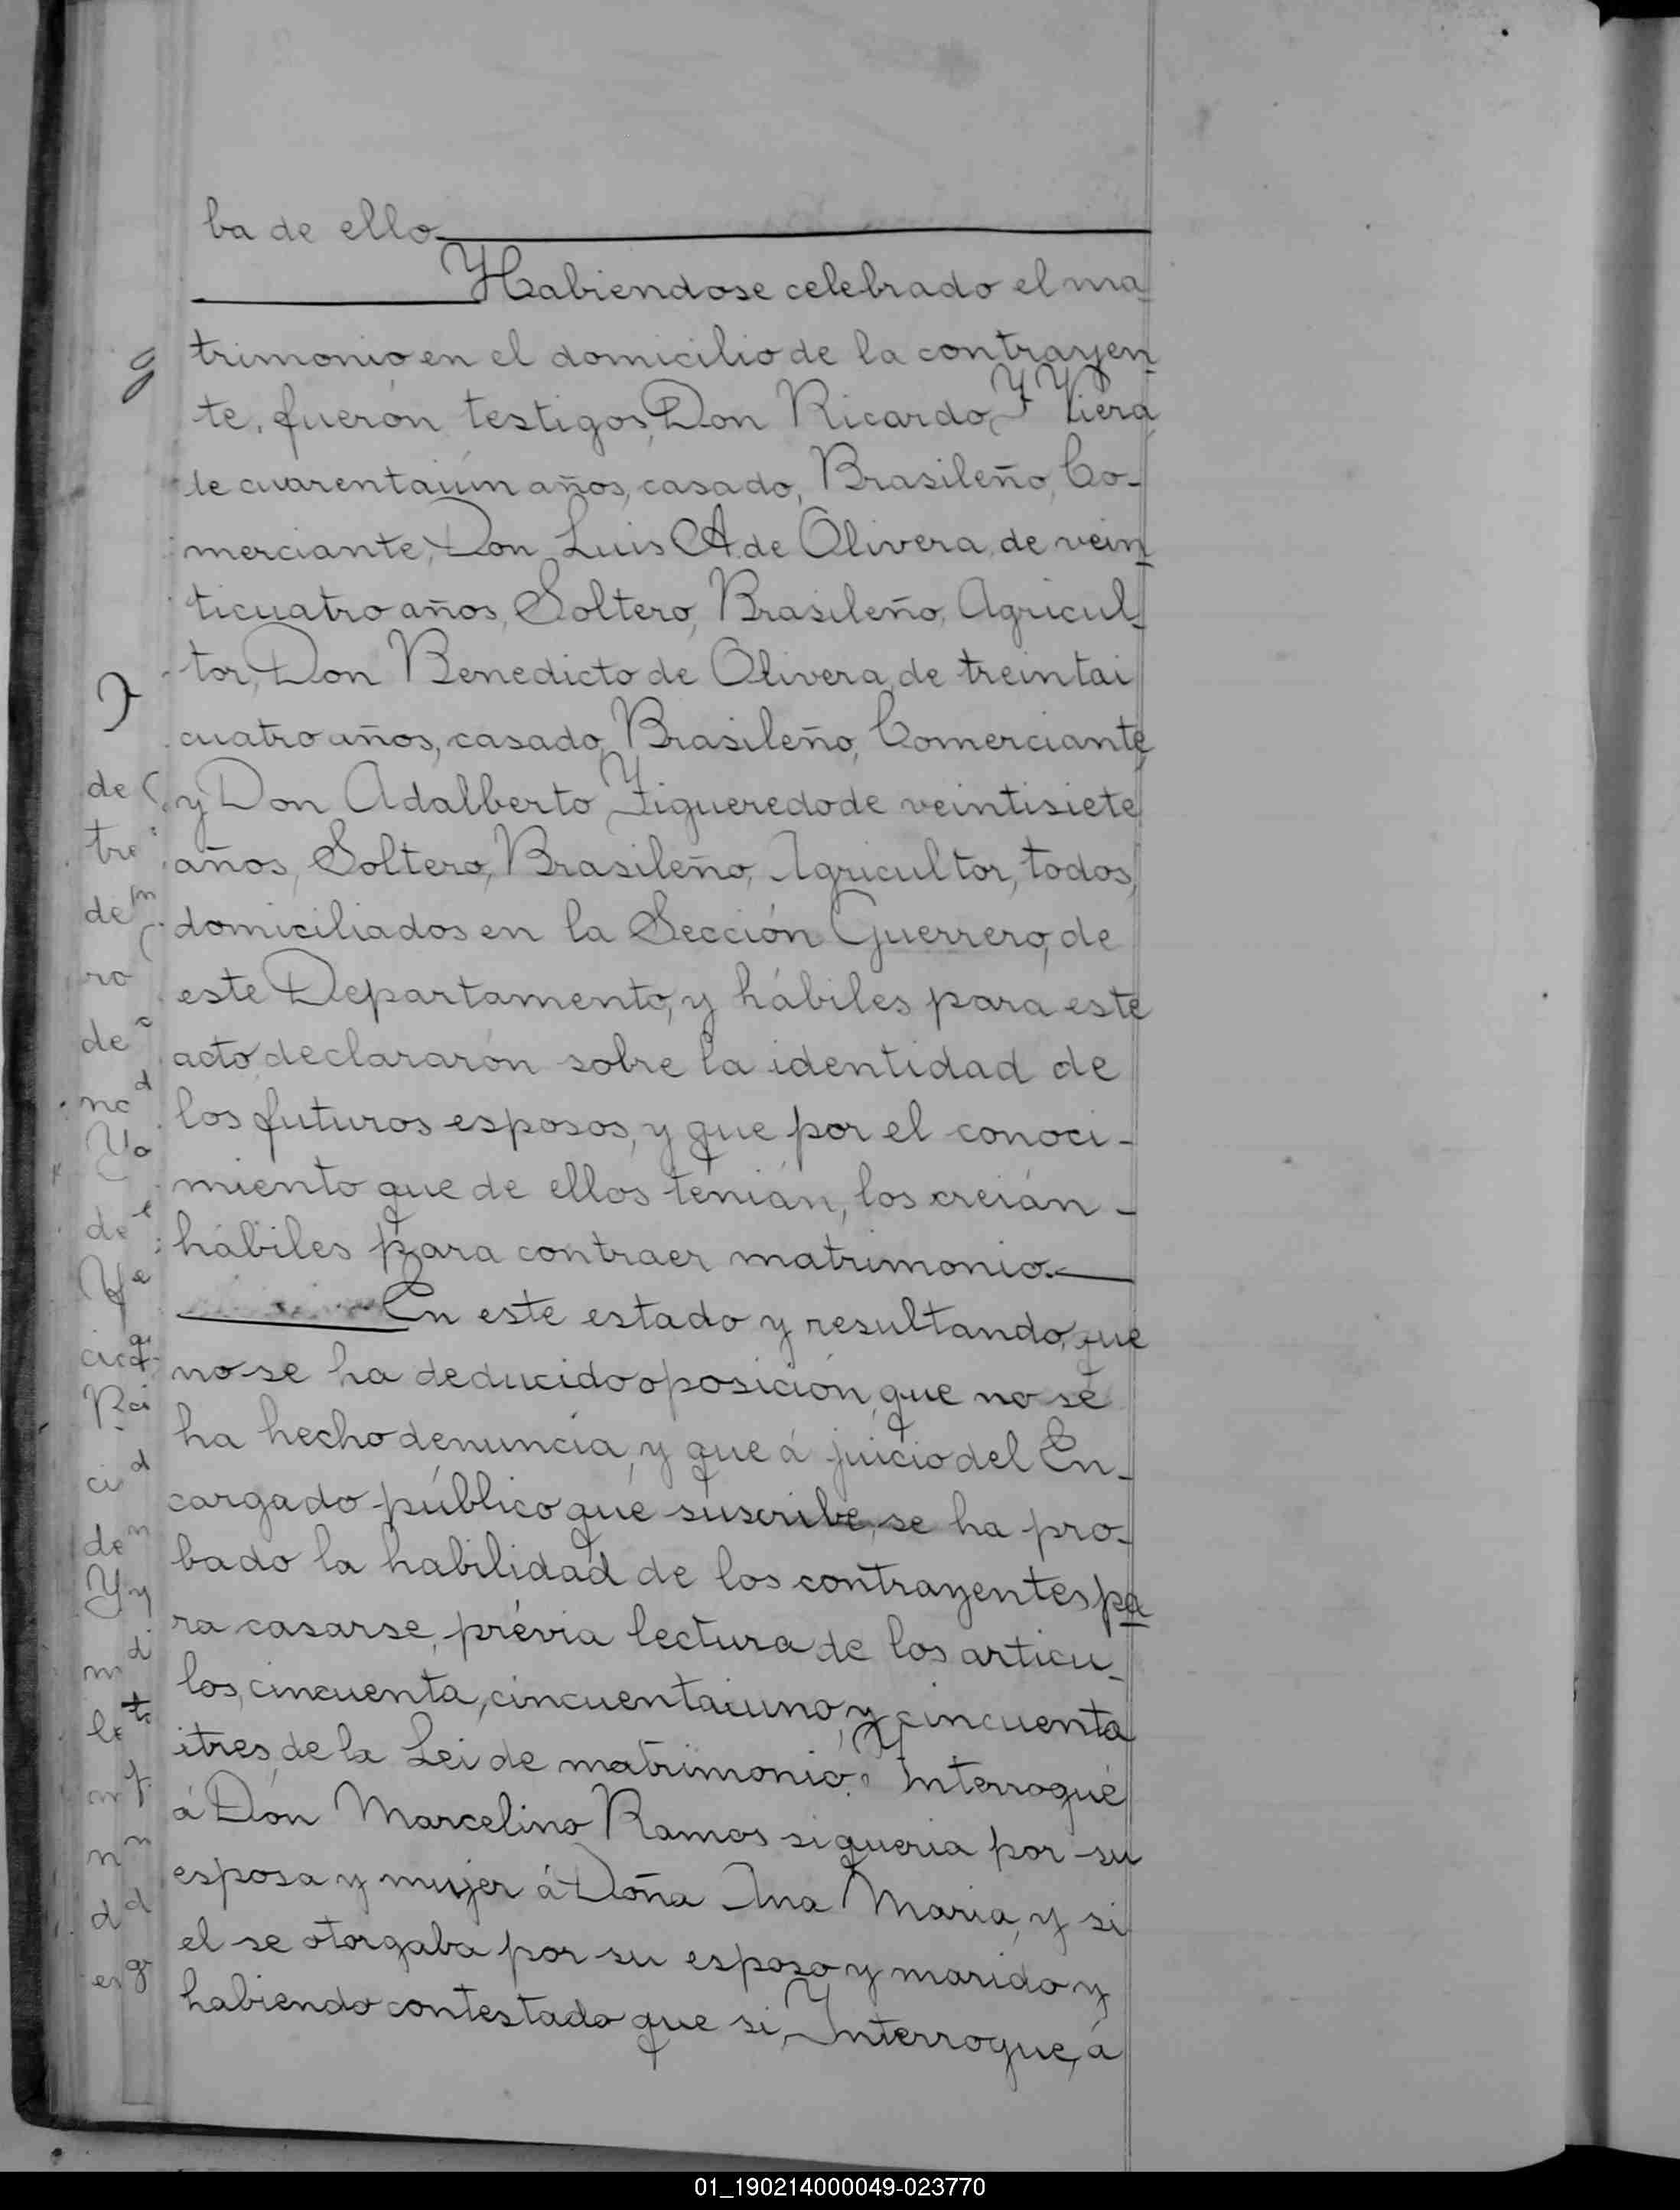 ba de ello
Habiendose celebrado el ma
trimonio en el domicilio de la contrayen
te, fuerón testigos, Don Ricardo F Viera
de cuarentaiún años, casado, Brasileño, Co-
merciante, Don Luis A. de Olivera, de vein
ticuatro años, Soltero, Brasileño, Agricul-
tor, Don Benedicto de Olivera, de treintai
cuatro años, casado, Brasileño, Comerciante,
y Don Adalberto Figueredo de veintisiete
años, Soltero, Brasileño, Agricultor, todos,
domiciliados en la Sección Guerrero, de
este Departamento, y hábiles para este
acto declararón sobre la identidad de
los futuros esposos, y que por el conoci-
miento que de ellos tenián, los creián -
hábiles para contraer matrimonio.
En este estado y resultando, que
no se ha deducido oposición, que no se
ha hecho denuncia, y que á juicio del En-
cargado público que suscribe, se ha pro-
bado la habilidad de los contrayentes pa
ra casarse, prévia lectura de los articu-
los, cincuenta, cincuentaiuno, y cincuenta
itres, de la Lei de matrimonio. Interrogué
á Don Marcelino Ramos si queria por su
esposa y mujer á Doña Ana Maria, y si
el se otorgaba por su esposo y marido y
habiendo contestado que si, Interrogue, á
01_190214000049-023770